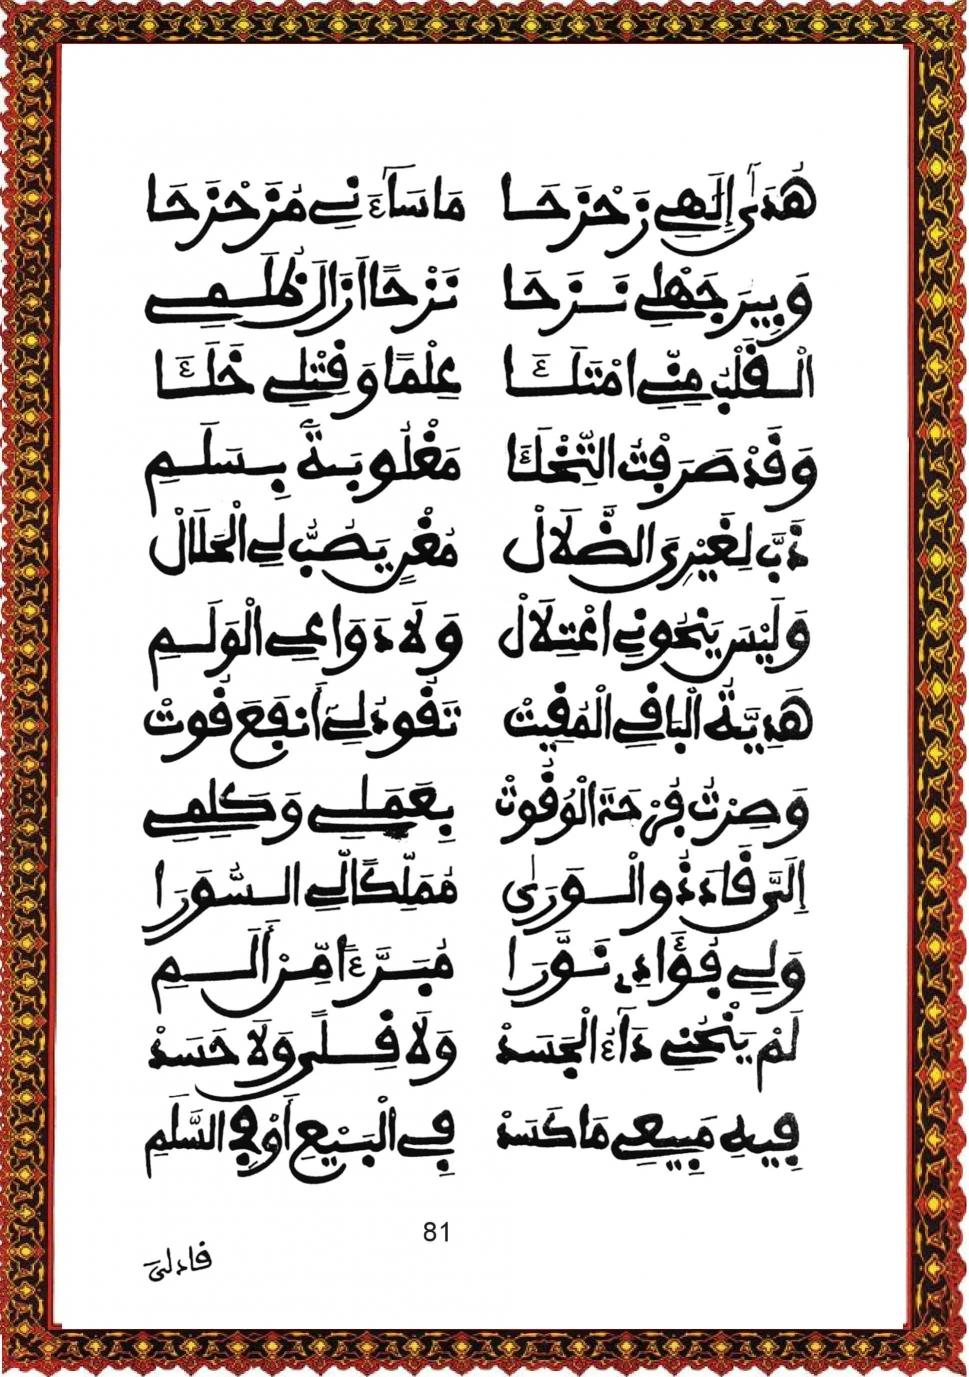 هُدَىٰ إِلَٰهِي زَحْزَحَا مَا سَآءَنِي مُزَحْزِحَا
وَبِيرَ جَهْلِي نَزَحَا نَزْحًا أَزَالَ ظُلَمِي
الْقَلْبُ مِنِّي امْتَلَأَ عِلْمًا وَقَتْلِي خَلَأَ
وَقَدْ صَرَفْتُ التِّخَلَأَ مَغْلُوبَةً بِسَلَمِ
ذَبَّ لِغَيْرِىَ الضَّلَالْ مُغْرٍ يَصُبُّ لِي الْحَلَالْ
وَلَيْسَ يَنْحُونِي اعْتِلَالْ وَلَا دَوَاعِي الْوَلَمِ
هَدِيَّةُ الْبَاقِي الْمُقِيتْ تَقُودُ لِيَ أَنفَعَ قُوتْ
وَصِرْتُ فُرْحَةَ الْوُقُوتْ بِعَمَلِي وَكَلِمِي
إِلَىَّ قَادَ ذُو الْوَرَىٰ مُمَلِّكًا لِي السُّوَرَا
وَلِي فُؤَادِي نَوَّرَا مُبَرَّءًا مِّنْ أَلَمِ
لَمْ يَنْحُنِي دَآءُ الْجَسَدْ وَلَا قِلًى وَلَا حَسَدْ
فِيهِ مَبِيعِي مَا كَسَدْ فِي الْبَيْعِ أَوْ فِي السَّلَمِ
81
قَادَ لِىَ